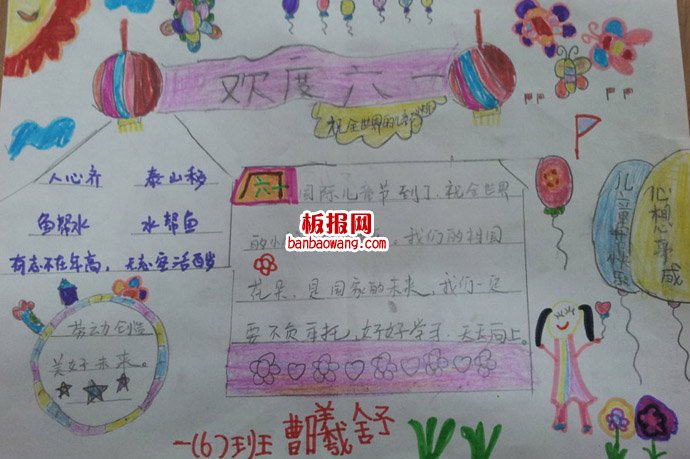 欢度六一
祝全世界的儿童
人心齐 泰山移
鱼帮水 水帮鱼
有志不在年高，无志空活百岁
劳动创造
美好未来。
六一 国际儿童节到了，祝全世界
的小 。我们的祖国
花朵，是国家的未来，我们一定
要不负 托，好好学习，天天向上。
儿童节快乐
心想事成
一(6)班 曹曦舒
板报网
banbaowang.com